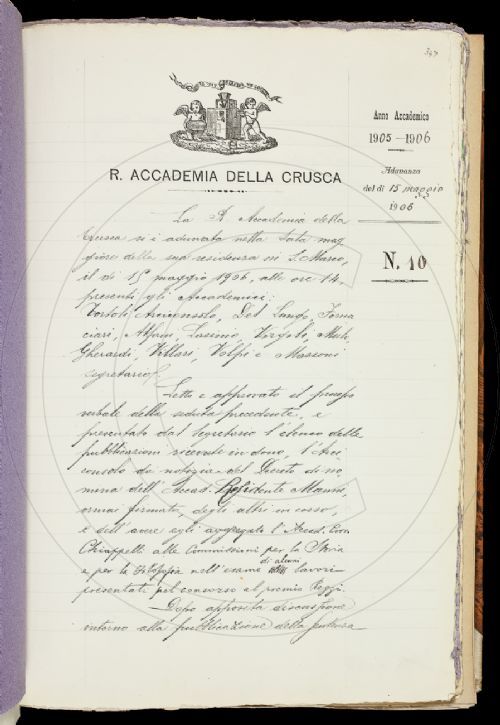 347
Anno Accademico
1905-1906
Adunanza
del dì 15 maggio
1906
N. 10
R. ACCADEMIA DELLA CRUSCA
La R. Accademia della
Crusca si è adunata nella Sala mag
giore della sua residenza in S. Marco,
il dì 15 maggio 1906, alle ore 14,
presenti gli Accademici:
Tortoli, Arciconsolo, Del Lungo, Forna
ciari, Alfani, Lasinio, Vergobi,
Gherardi, Villari, Volpi e Mazzoni
segretario.
Letto e approvato il processo
verbale della seduta precedente, e
presentato dal Segretario l'elenco delle
pubblicazioni ricevute in dono, l'Arci
consolo dà notizia del Decreto di no
mina dell'Accad. Residente Mazzoni,
ormai firmato, degli altri in corso,
e dell'avere egli aggregato l'Accad. Corr.
Chiappelli alle Commissioni per la Storia
e per la Filosofia nell'esame di alcuni lavori
presentati pel concorso al premio Rezzi.
Dopo apposita discussione
intorno alla pubblicazione della